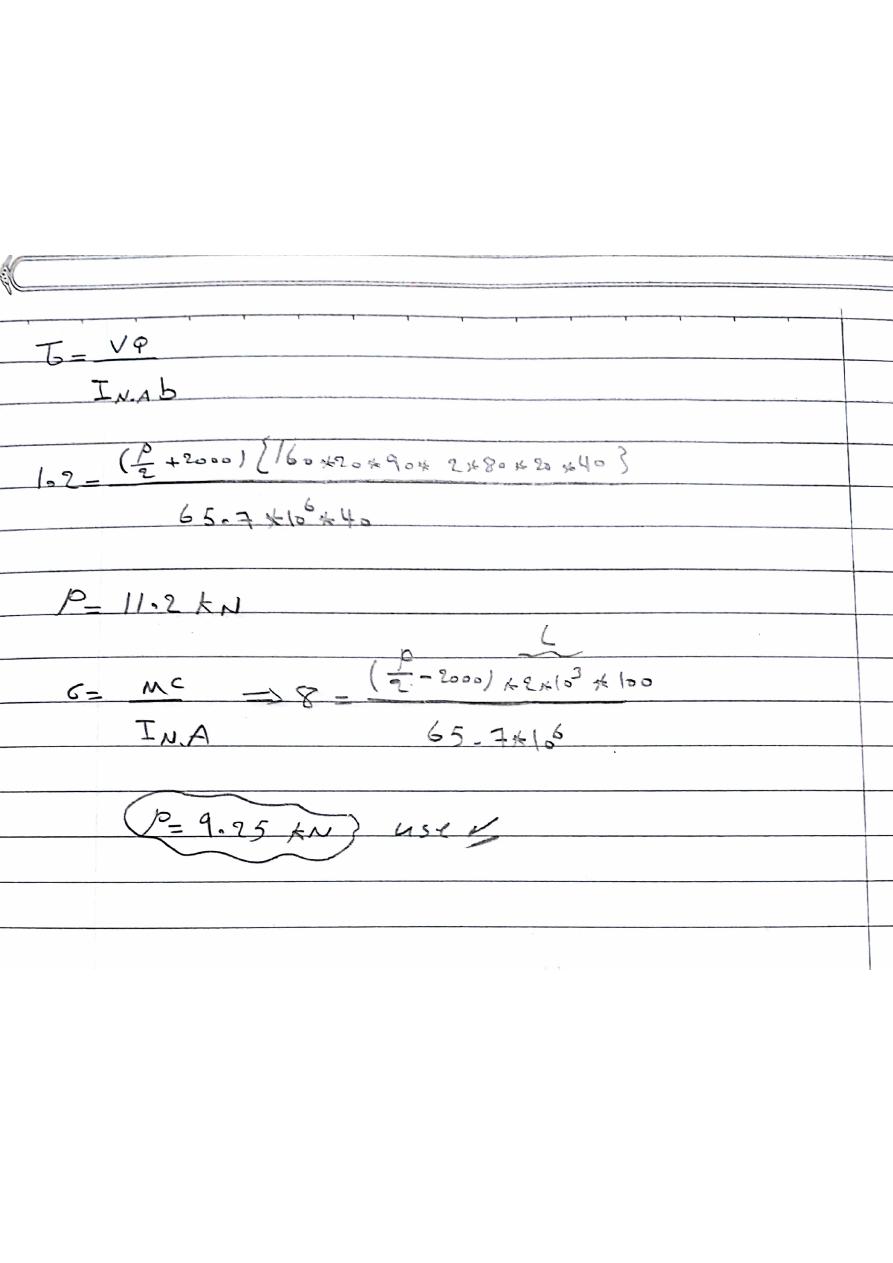 τ = VQ / I_N.A b
1.2 = (P/2 + 2000) {160*20*90* 2*80*20*40} / 65.7*10^6*40
P = 11.2 kN
σ = MC / I_N.A ⇒ 8 = (P/2 - 2000) *2*10^3 *100 / 65.7*10^6
L
P = 9.25 kN } use ✓